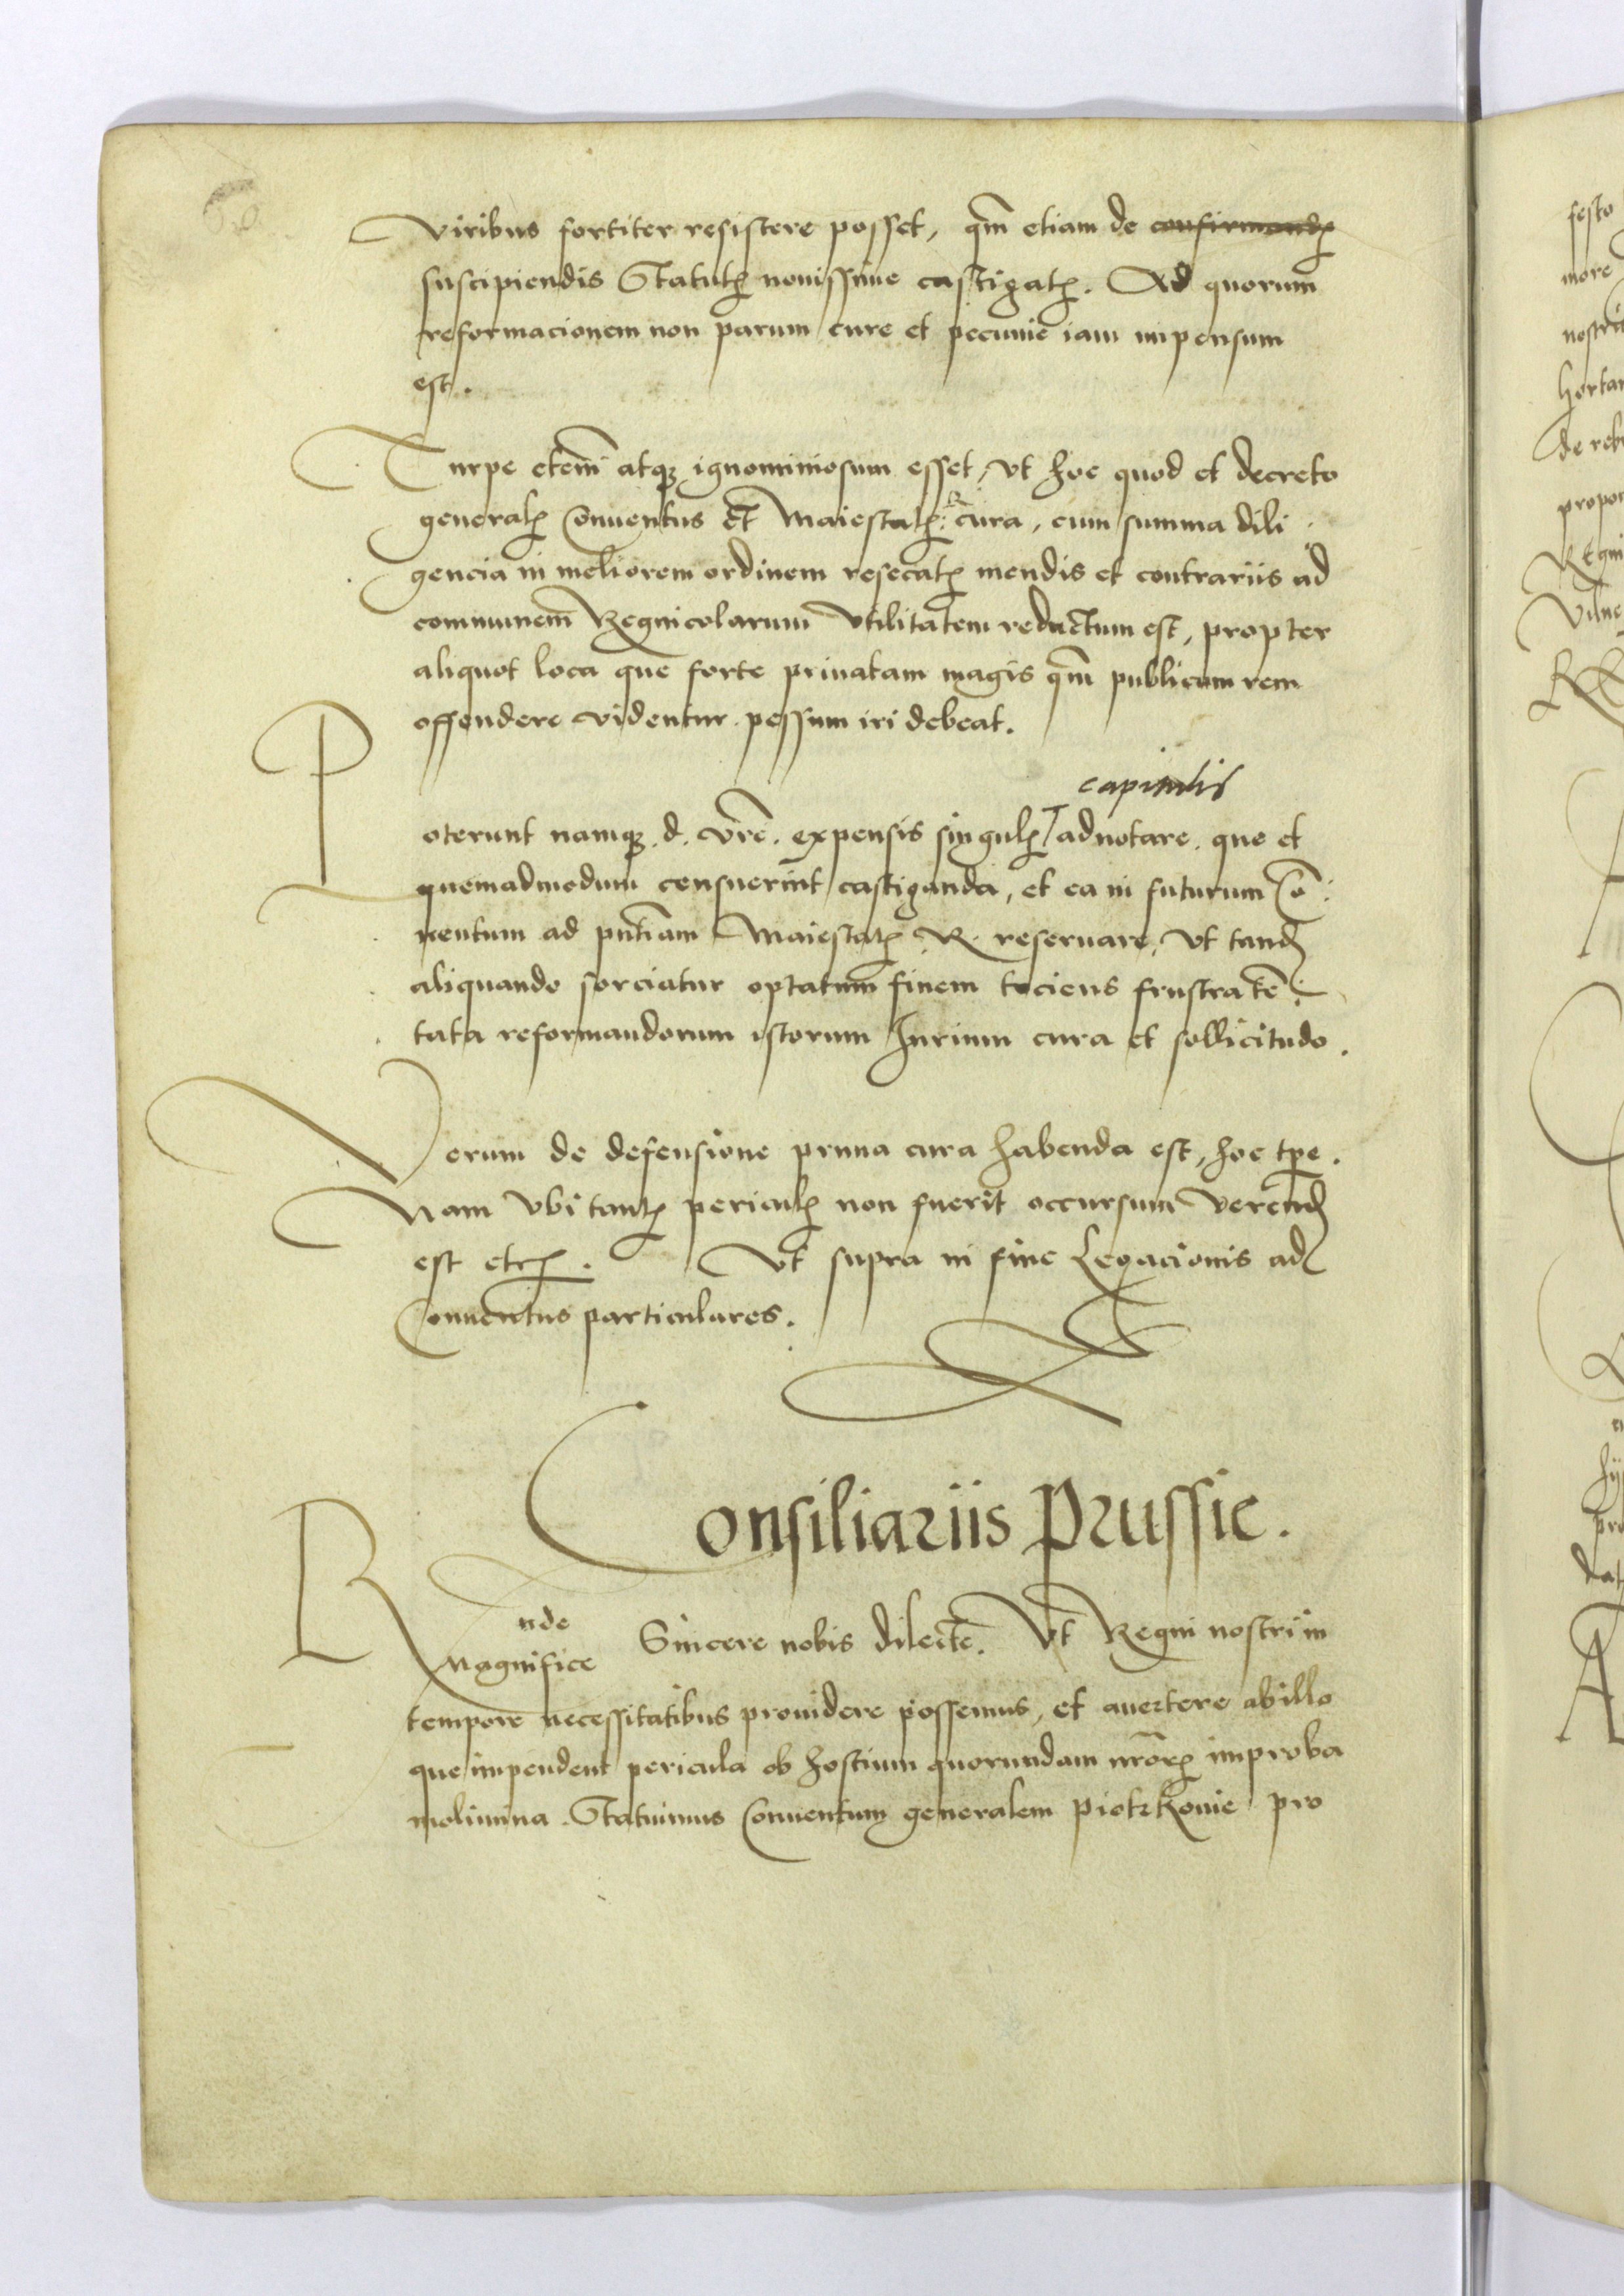 viribus fortiter resistere posset, qm̄ etiam de confirmandꝭ
suscipiendis Statutꝭ nouissime castigatꝭ. Ad quorum
reformacionem non parum cure et pecunie iam impensum
est.
Turpe etem̄ atqꝫ ignominiosum esset, vt hoc quod et decreto
generalꝭ Conuentus et Maiestatꝭ R cura, cum summa dili
gencia in meliorem ordinem resecatꝭ mendis et contrariis ad
communem Regnicolarum vtilitatem reductum est, propter
aliquot loca que forte priuatam magis qm̄ publicam rem
offendere videntur pessum iri debeat.
capitulis
Poterunt namqꝫ d. vrē. expensis singulꝭ adnotare que et
quemadmodum censuerint castiganda, et ea in futurum Con:
uentum ad pn̄tiam Maiestatꝭ R. reseruare, vt tandꝭ
aliquando sorciatur optatum finem tociens frustra ten:
tata reformandorum istorum Iurium cura et sollicitudo.
Verum de defensione prima cura habenda est, hoc tp̄e.
Nam vbi tantꝭ periculꝭ non fuerit occursum verendꝭ
est etcꝭ. Vt supra in fine Legacionis ad
Conuentus particulares.
Consiliariis Prussie.
Rnde
Magnifice Sincere nobis dilecte. Vt Regni nostri in
tempore necessitatibus prouidere possemus, et auertere ab illo
que impendent pericula ob hostium quorundam nr̄orꝭ improba
molimina. Statuimus Conuentum generalem Piotrkouie pro